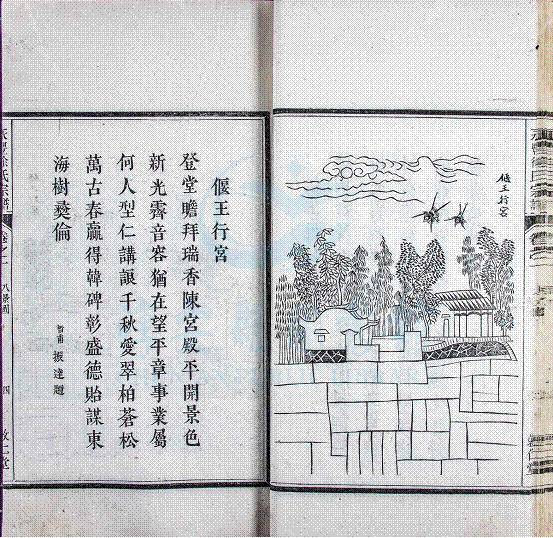 偃王行宮
偃王行宮
登堂瞻拜瑞香陳宮殿平開景色
新光霽音容猶在望平章事業屬
何人型仁講讓千秋愛翠柏蒼松
萬古春贏得韓碑彰盛德貽謀東
海樹彝倫
振達題
徐氏宗譜
八景圖
四